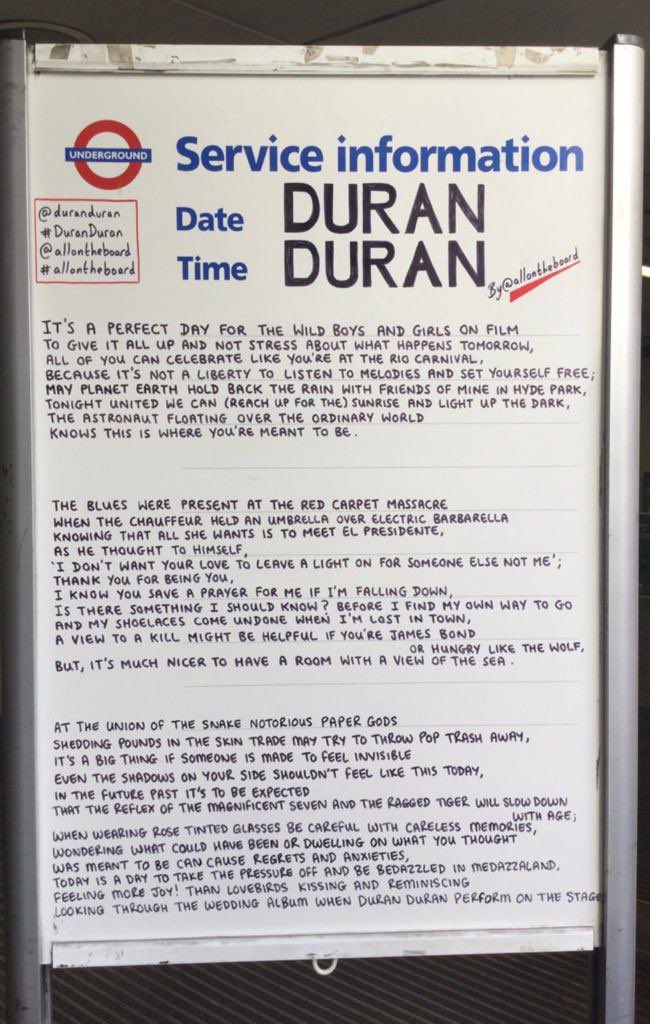 UNDERGROUND
Service information
Date DURAN
Time DURAN
@duranduran
#DuranDuran
@allontheboard
#allontheboard
By@allontheboard
IT'S A PERFECT DAY FOR THE WILD BOYS AND GIRLS ON FILM
TO GIVE IT ALL UP AND NOT STRESS ABOUT WHAT HAPPENS TOMORROW,
ALL OF YOU CAN CELEBRATE LIKE YOU'RE AT THE RIO CARNIVAL,
BECAUSE IT'S NOT A LIBERTY TO LISTEN TO MELODIES AND SET YOURSELF FREE;
MAY PLANET EARTH HOLD BACK THE RAIN WITH FRIENDS OF MINE IN HYDE PARK,
TONIGHT UNITED WE CAN (REACH UP FOR THE) SUNRISE AND LIGHT UP THE DARK,
THE ASTRONAUT FLOATING OVER THE ORDINARY WORLD
KNOWS THIS IS WHERE YOU'RE MEANT TO BE.
THE BLUES WERE PRESENT AT THE RED CARPET MASSACRE
WHEN THE CHAUFFEUR HELD AN UMBRELLA OVER ELECTRIC BARBARELLA
KNOWING THAT ALL SHE WANTS IS TO MEET EL PRESIDENTE,
AS HE THOUGHT TO HIMSELF,
'I DON'T WANT YOUR LOVE TO LEAVE A LIGHT ON FOR SOMEONE ELSE NOT ME';
THANK YOU FOR BEING YOU,
I KNOW YOU SAVE A PRAYER FOR ME IF I'M FALLING DOWN,
IS THERE SOMETHING I SHOULD KNOW? BEFORE I FIND MY OWN WAY TO GO
AND MY SHOELACES COME UNDONE WHEN I'M LOST IN TOWN,
A VIEW TO A KILL MIGHT BE HELPFUL IF YOU'RE JAMES BOND
OR HUNGRY LIKE THE WOLF,
BUT, IT'S MUCH NICER TO HAVE A ROOM WITH A VIEW OF THE SEA.
AT THE UNION OF THE SNAKE NOTORIOUS PAPER GODS
SHEDDING POUNDS IN THE SKIN TRADE MAY TRY TO THROW POP TRASH AWAY,
IT'S A BIG THING IF SOMEONE IS MADE TO FEEL INVISIBLE
EVEN THE SHADOWS ON YOUR SIDE SHOULDN'T FEEL LIKE THIS TODAY,
IN THE FUTURE PAST IT'S TO BE EXPECTED
THAT THE REFLEX OF THE MAGNIFICENT SEVEN AND THE RAGGED TIGER WILL SLOW DOWN
WITH AGE;
WHEN WEARING ROSE TINTED GLASSES BE CAREFUL WITH CARELESS MEMORIES,
WONDERING WHAT COULD HAVE BEEN OR DWELLING ON WHAT YOU THOUGHT
WAS MEANT TO BE CAN CAUSE REGRETS AND ANXIETIES,
TODAY IS A DAY TO TAKE THE PRESSURE OFF AND BE BEDAZZLED IN MEDAZZALAND,
FEELING MORE JOY! THAN LOVEBIRDS KISSING AND REMINISCING
LOOKING THROUGH THE WEDDING ALBUM WHEN DURAN DURAN PERFORM ON THE STAGE